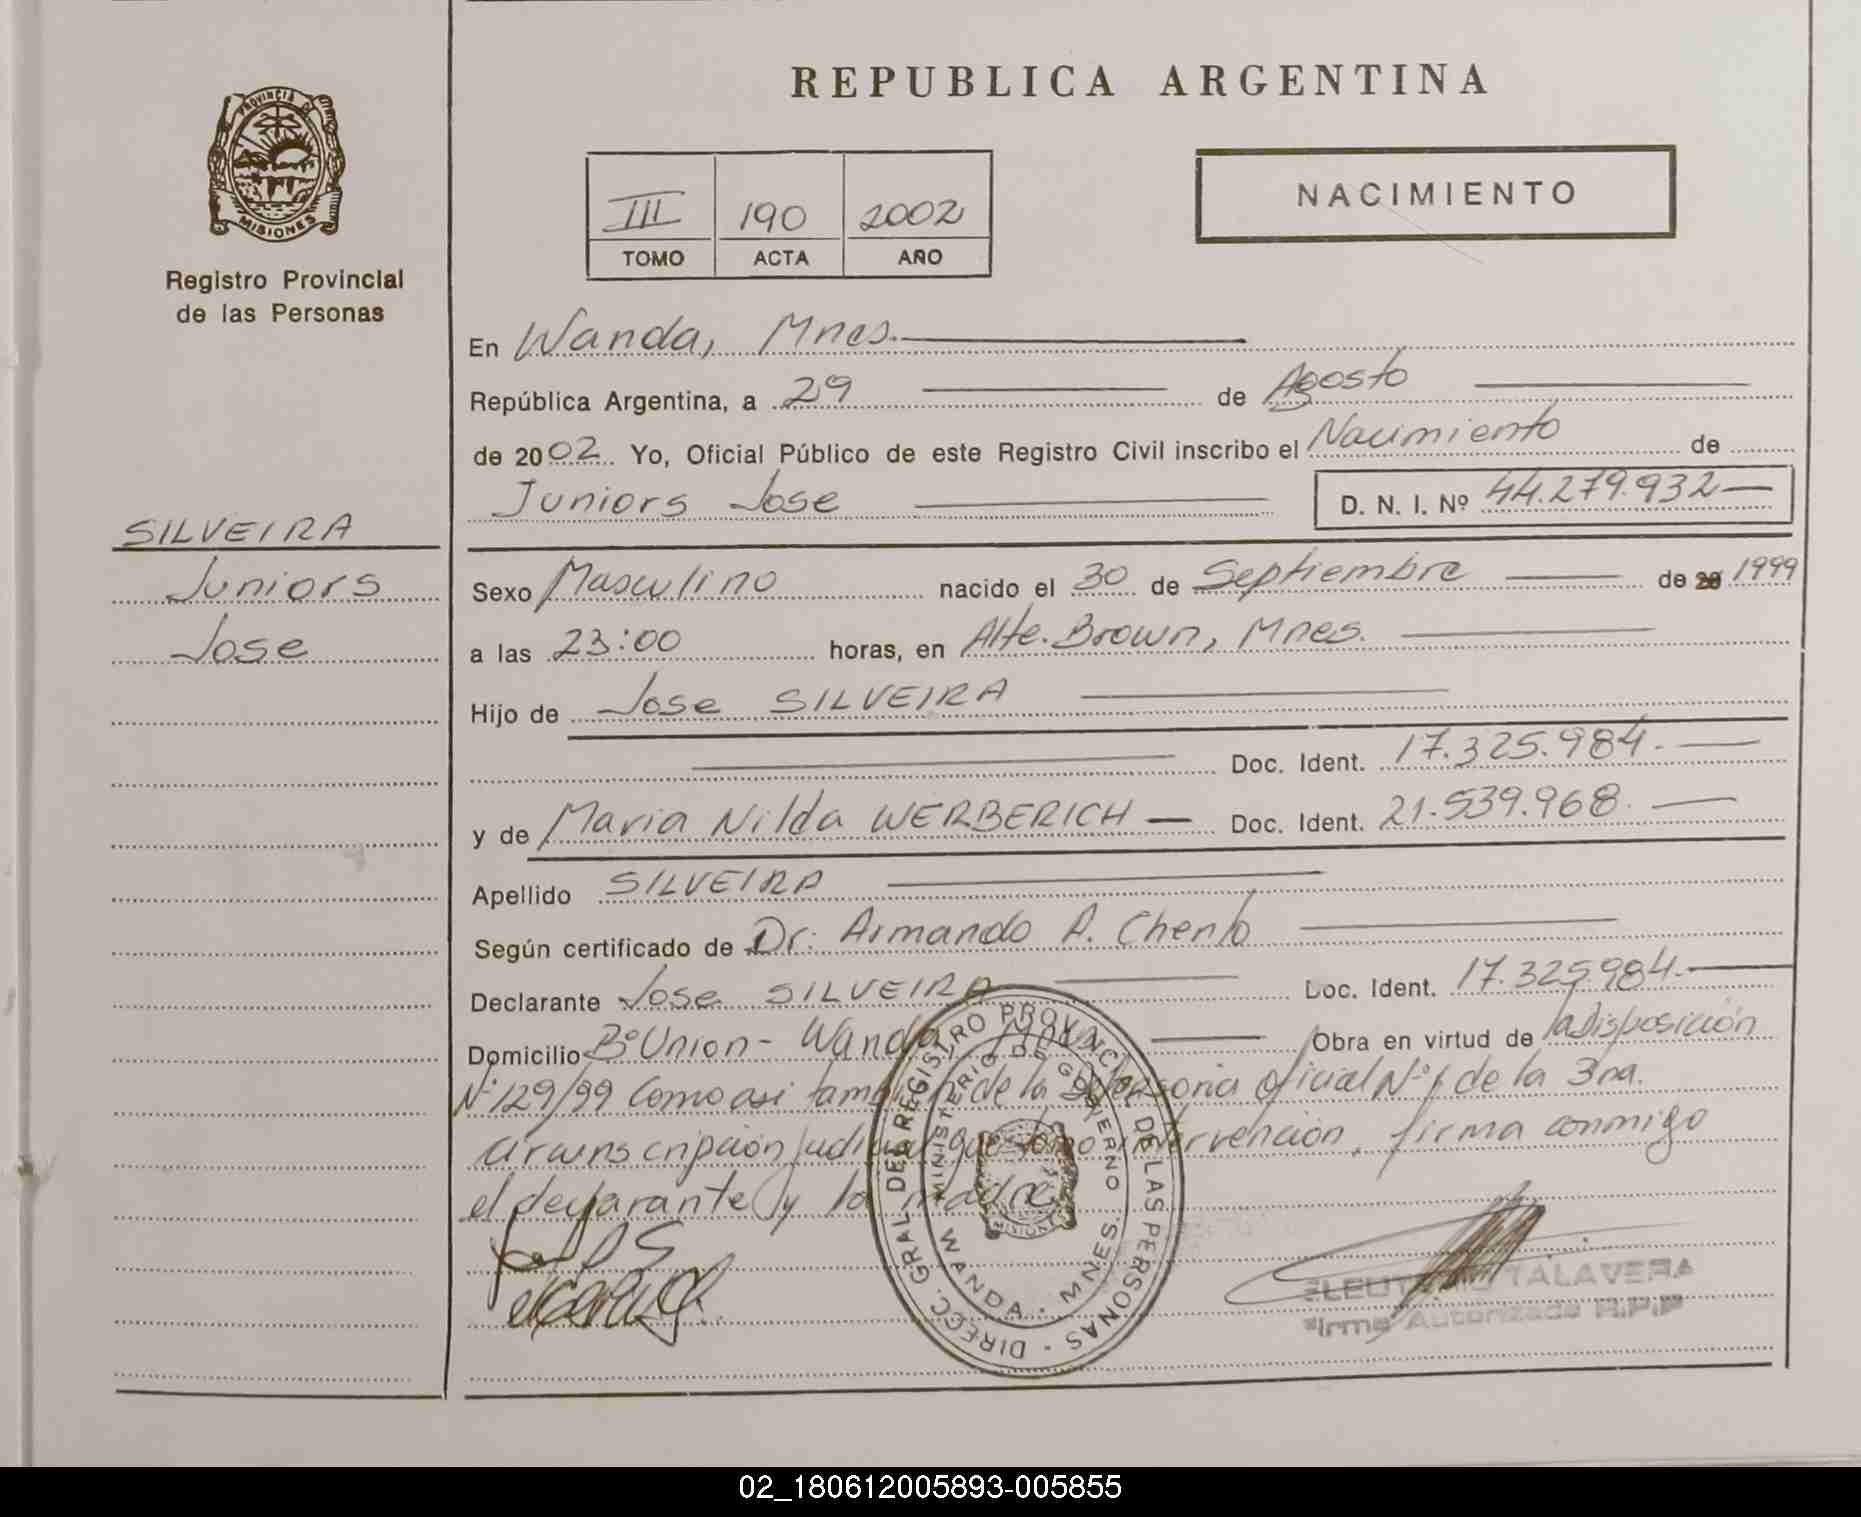 REPUBLICA ARGENTINA
PROVINCIA DE
MISIONES
Registro Provincial
de las Personas
III 190 2002
TOMO ACTA AÑO
NACIMIENTO
En Wanda, Mnes.
República Argentina, a 29 de Agosto
de 2002 Yo, Oficial Público de este Registro Civil inscribo el Nacimiento de
Juniors Jose D. N. I. Nº 44.279.932
SILVEIRA
Juniors
Jose
Sexo Masculino nacido el 30 de Septiembre de 20 1999
a las 23:00 horas, en Alte. Brown, Mnes.
Hijo de Jose SILVEIRA
Doc. Ident. 17.325.984.
y de Maria Nilda WERBERICH Doc. Ident. 21.539.968.
Apellido SILVEIRA
Según certificado de Dr. Armando A. Chento
Declarante Jose SILVEIRA Doc. Ident. 17.325.984.
Domicilio Bº Union - Wanda, Mnes. Obra en virtud de la Disposición
Nº 129/99 como asi tambien de la Defensoria oficial Nº 1 de la 3ra.
circunscripción judicial que tomo intervención, firma conmigo
el declarante y la madre
DIRECC. GRAL. DEL REGISTRO PROVINCIAL DE LAS PERSONAS
MINISTERIO DE GOBIERNO
WANDA - MNES.
MISIONES
TALAVERA
Firma Autorizada R.P.P
02_180612005893-005855